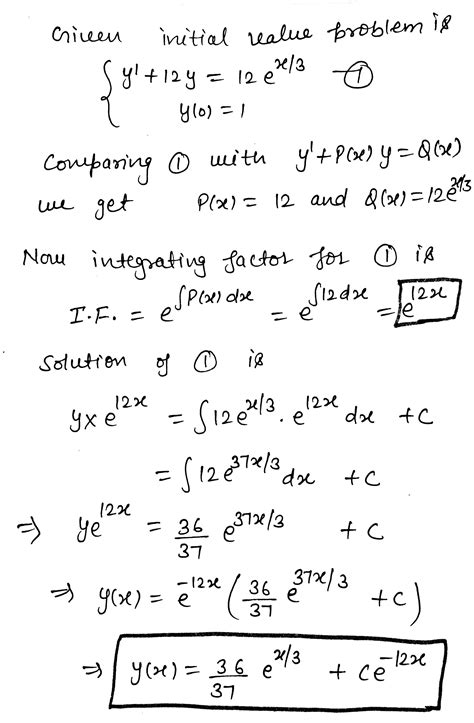 Given initial value problem is
{ y' + 12y = 12 e^{x/3} —①
y(0) = 1
Comparing ① with y' + P(x) y = Q(x)
we get P(x) = 12 and Q(x) = 12e^{x/3}
Now integrating factor for ① is
I.F. = e^{∫P(x) dx} = e^{∫12dx} = e^{12x}
Solution of ① is
y x e^{12x} = ∫12e^{x/3} . e^{12x} dx + C
= ∫12e^{37x/3} dx + C
⇒ ye^{12x} = 36/37 e^{37x/3} + C
⇒ y(x) = e^{-12x} ( 36/37 e^{37x/3} + C )
⇒ y(x) = 36/37 e^{x/3} + Ce^{-12x}